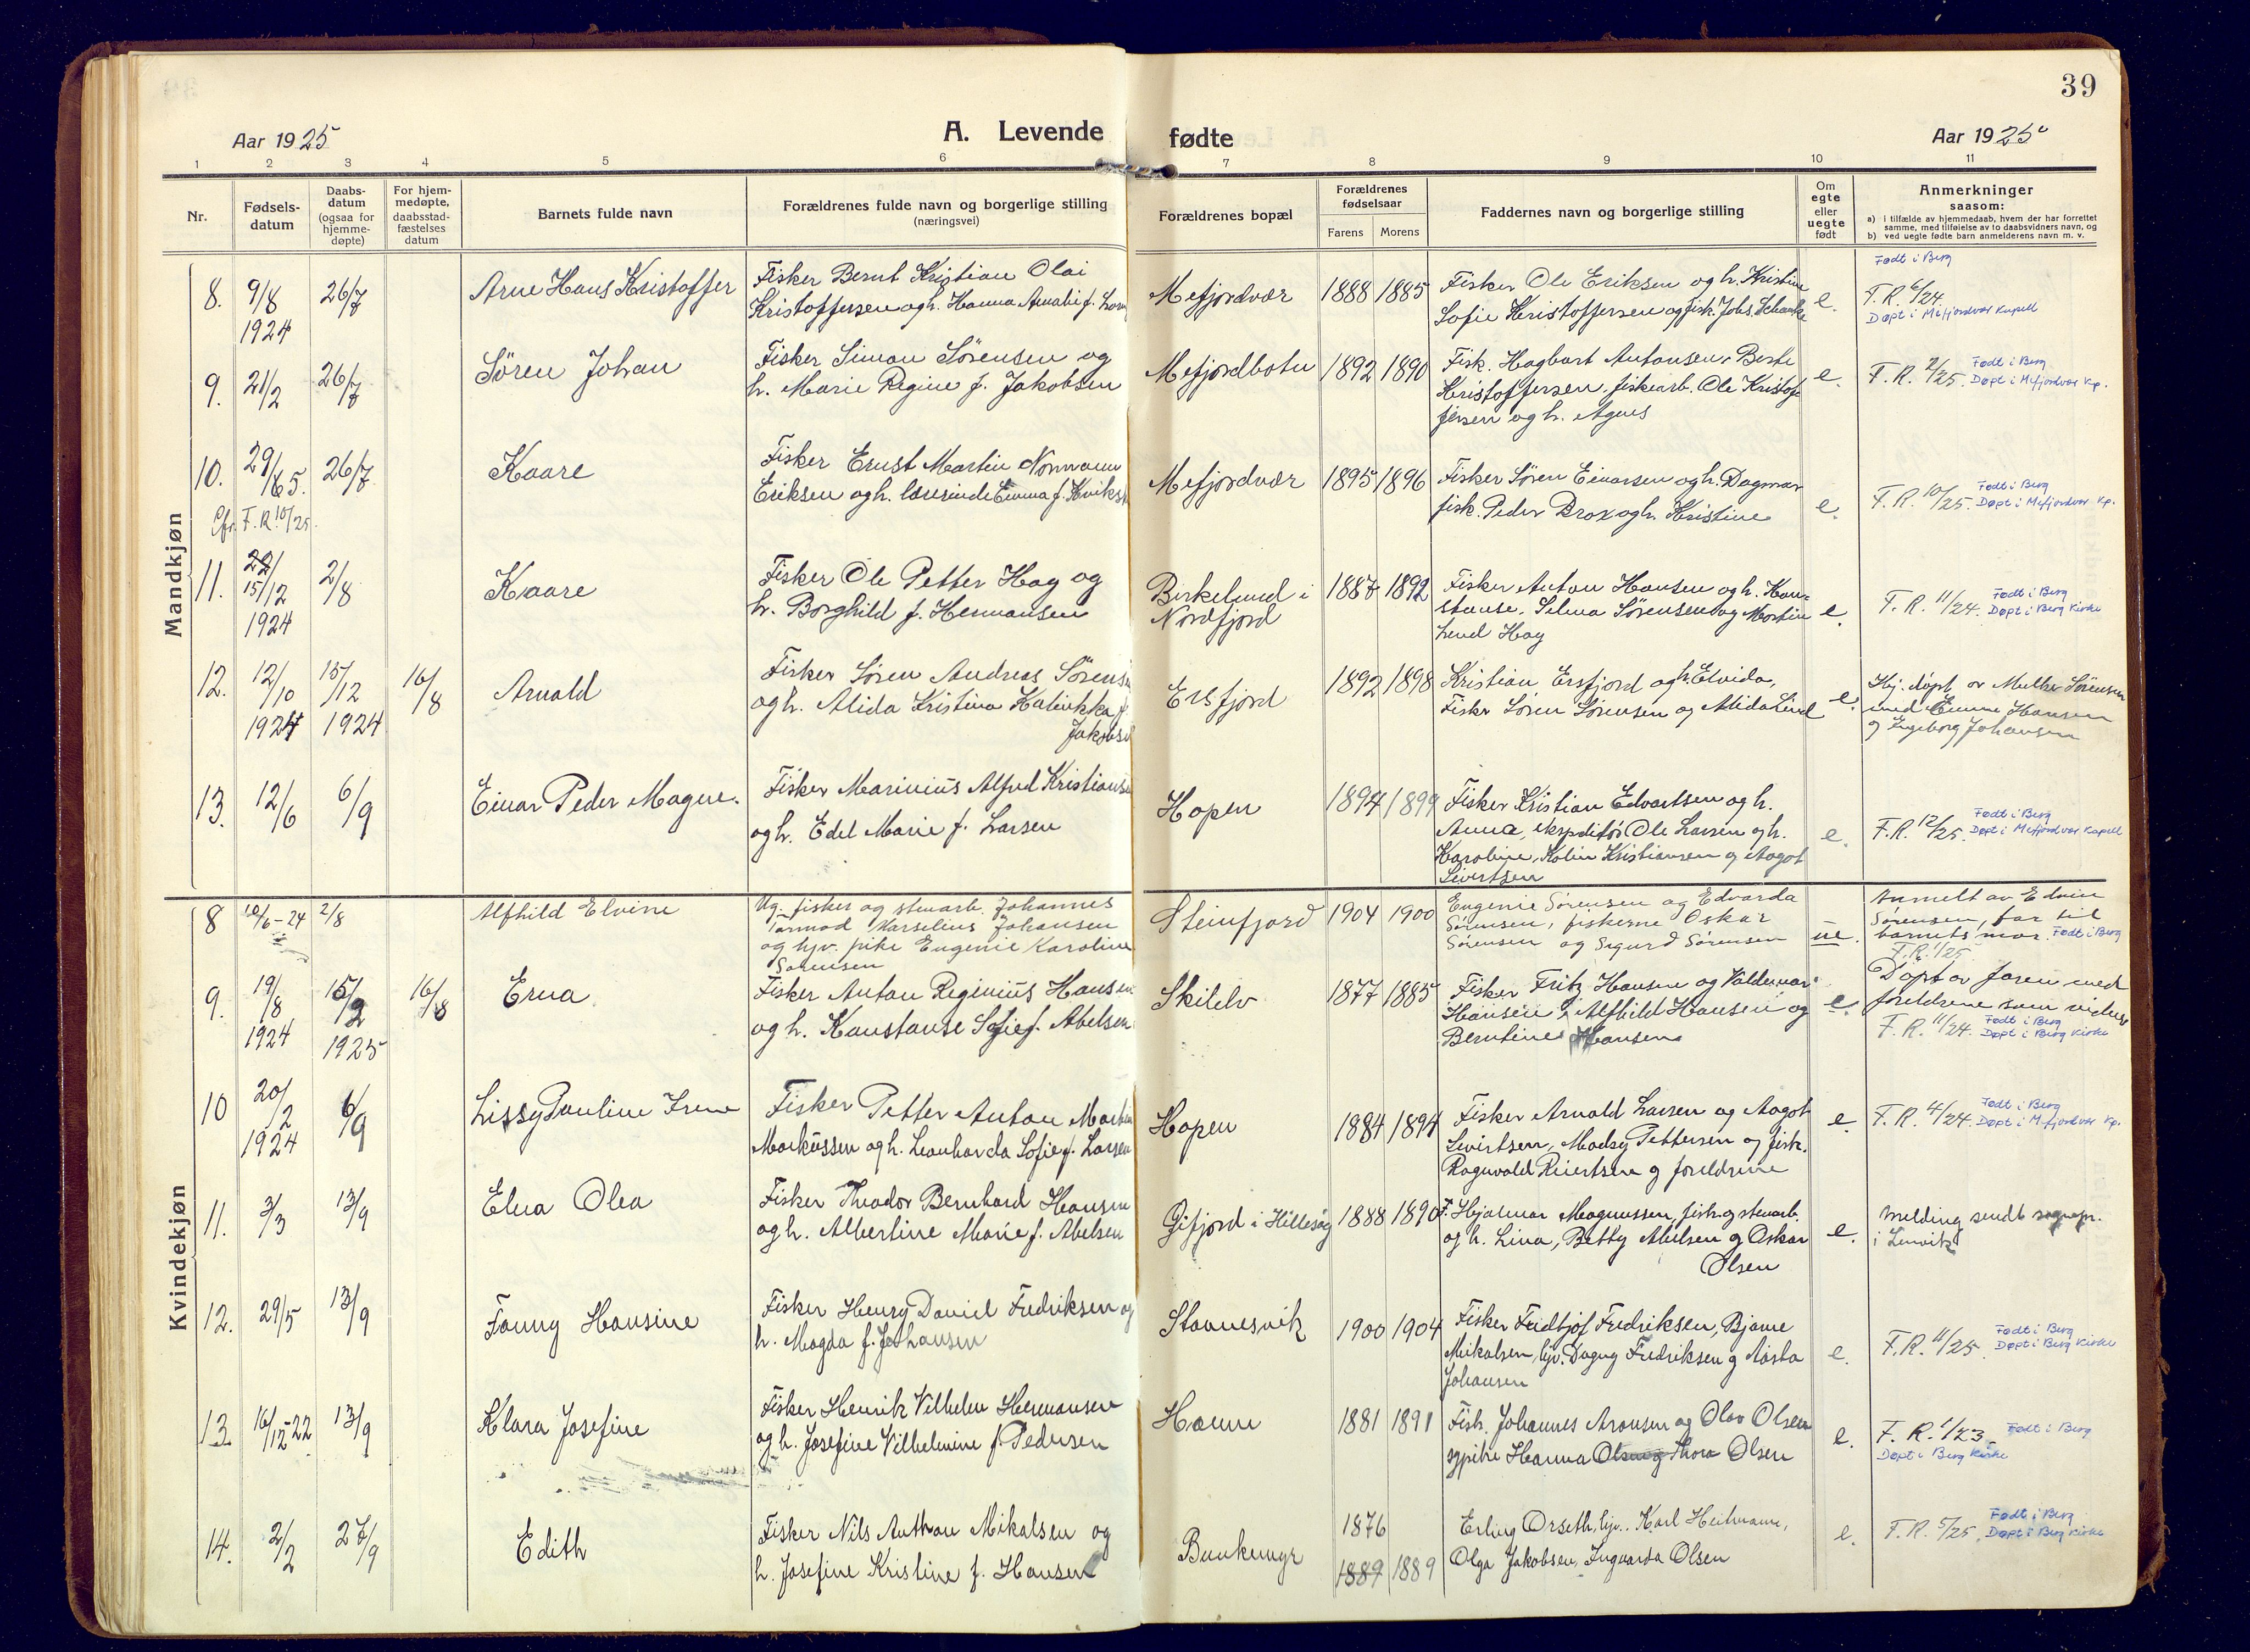 39
Aar 1925
A. Levende
fødte
Aar 1925
1 2 3 4 5 6 7 8 9 10 11
Nr.
Fødsels-
datum
Daabs-
datum
(ogsaa for
hjemme-
døpte)
For hjem-
medøpte,
daabsstad-
fæstelses
datum
Barnets fulde navn
Forældrenes fulde navn og borgerlige stilling
(næringsvei)
Forældrenes bopæl
Forældrenes
fødselsaar
Farens Morens
Faddernes navn og borgerlige stilling
Om
egte
eller
uegte
født
Anmerkninger
saasom:
a) i tilfælde av hjemmedaab, hvem der har forrettet
samme, med tilføielse av to daabsvidners navn, og
b) ved uegte fødte barn anmelderens navn m. v.
Mandkjøn
8. 9/8 1924 26/7
Arne Hans Kristoffer
Fisker Bernt Kristian Olai
Kristoffersen og h. Hanna Amalie f.
Mefjordvær 1888 1885
Fisker Ole Eriksen og h. Kristine
Sofie Kristoffersen og fisk. Johs.
e.
Født i Berg
F.R. 6/24.
Døpt i Mefjordvær Kapell
9. 21/2 26/7
Søren Johan
Fisker Simon Sørensen og
h. Marie Regine f. Jakobsen
Mefjordbotn 1892 1890
Fisk. Hagbart Antonsen, Berte
Kristoffersen, fiskearb. Ole Kristof-
fersen og h. Agnes
e.
F.R. 2/25. Født i Berg
Døpt i Mefjordvær Kp.
10. 29/5. 26/7
Cfr. F.R. 10/25.
Kaare
Fisker Ernst Martin Normann
Eriksen og h. lærerinde Emma f.
Mefjordvær 1895 1896
Fisker Søren Einarsen og h. Dagmar
fisk. Peder Brox og h. Kristine
e.
F.R. 10/25. Født i Berg
Døpt i Mefjordvær Kp.
11. 15/12 1924 2/8
Kaare
Fisker Ole Petter Hay og
h. Borghild f. Hermansen
Birkelund i
Nordfjord
1887 1892
Fisker Anton Hansen og h. Kon-
stanse, Selma Sørensen og Martin
Lend Hay
e.
F.R. 11/24. Født i Berg
Døpt i Berg Kirke
12. 12/10 1924 15/12 1924 16/8
Arnold
Fisker Søren Andreas
og h. Alida Kristina f.
Ersfjord 1892 1898
Kristian Ersfjord og h. Elvida,
Fisker Søren Sørensen og Alida Lind
e.
Hj. døpt av Sørensen
med Emma Hansen
og Ingeborg Johansen
13. 12/6 6/9
Einar Peder Magne.
Fisker Marinius Alfred
og h. Edel Marie f. Larsen
Hopen 1894 1899
Fisker Kristian Edvartsen og h.
Anna, ekspeditør Ole Larsen og h.
Karoline, Kolin Kristiansen og Aagot
Sivertsen
e.
F.R. 12/25. Født i Berg
Døpt i Mefjordvær Kapell
Kvindekjøn
8 10/6-24 2/8
Alfhild Elvine
Ug. fisker og stenarb. Johannes
Tormod Marselius Johansen
og hjv. pike Eugenie Karoline
Sørensen
Steinfjord 1904 1900
Eugenie Sørensen og Edvarda
Sørensen, fiskerne Oskar
Sørensen og Sigurd Sørensen
ue.
Anmelt av Edvin
Sørensen, far til
barnets mor. Født i Berg
F.R. 1/25
9. 19/8 1924 15/2 1925 16/8
Erna
Fisker Anton Reginius Hansen
og h. Konstanse Sofie f. Abelsen
Skilelv 1877 1885
Fisker Fritz Hansen og Valdemar
Hansen, Alfhild Hansen og
Berntine Hansen
e.
Døpt av faren med
foreldrene som vidner
F.R. 11/24. Født i Berg
Døpt i Berg Kirke
10 20/2 1924 6/9
Lissy Pauline Irene
Fisker Petter Anton
Markussen og h. Leonharda Sofie f. Larsen
Hopen 1884 1894
Fisker Arnold Larsen og Aagot
Sivertsen, Madsy Pettersen og fisk.
Ragnvald Reiertsen og foreldrene
e.
F.R. 4/24. Født i Berg
Døpt i Mefjordvær Kp.
11. 3/3 13/9
Elna Olea
Fisker Theodor Bernhard Hansen
og h. Albertine Marie f. Abelsen
Gifjord i Hillesøy 1888 1890
F. Hjalmar Magnussen, fisk. og stenarb.
og h. Lina, Betty Abelsen og Oskar
Olsen
e.
Melding sendt sognepr.
i Lenvik
12. 29/5 13/9
Fanny Hansine
Fisker Henry Daniel Fredriksen og
h. Magda f. Johansen
Stavnesvik 1900 1904
Fisker Fridtjof Fredriksen, Bjarne
Mikalsen, hjv. Dagny Fredriksen og Aasta
Johansen
e.
F.R. 11/25 Født i Berg
Døpt i Berg Kirke
13. 16/12-22 13/9
Klara Josefine
Fisker Henrik Vilhelm Hermansen
og h. Josefine Vilhelmine f. Pedersen
Hamn 1881 1891
Fisk. Johannes Aronsen og Olav Olsen
sypike Hanna Thora Olsen
e.
F.R. 1/23. Født i Berg
Døpt i Berg Kirke
14. 2/2 27/9
Edith
Fisker Nils Anthon Mikalsen og
h. Josefine Kristine f. Hansen
Bunkemyr 1876 1889 1889
Erling Orseth, hjv. Karl Heitmann,
Olga Jakobsen, Ingvarda Olsen
e.
F.R. 5/25. Født i Berg
Døpt i Berg Kirke